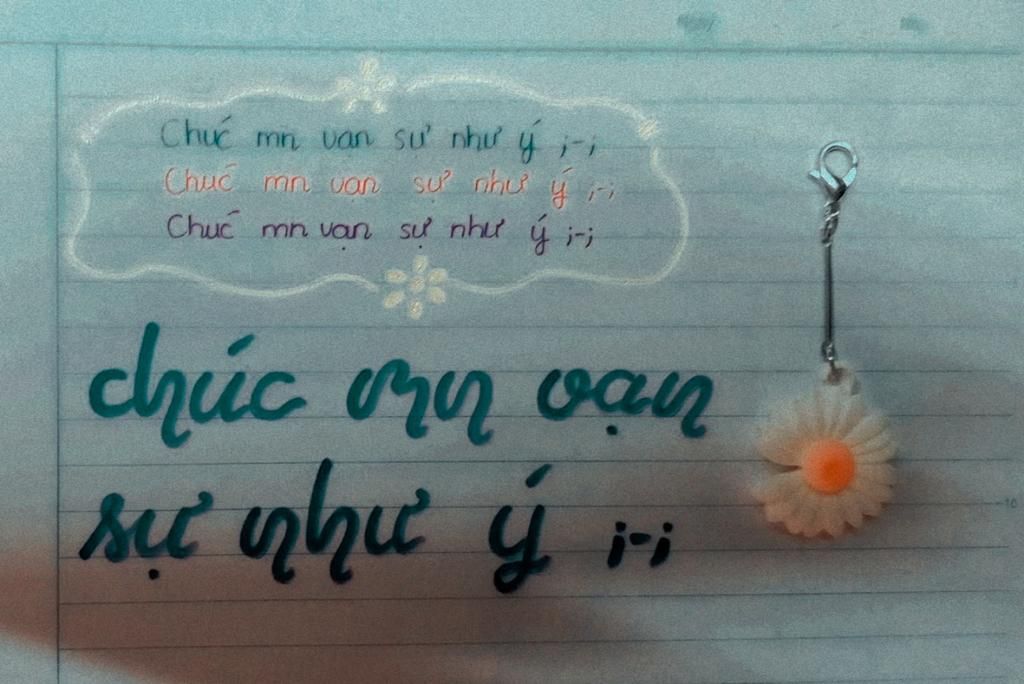 Chúc mn vạn sự như ý ;-;
Chúc mn vạn sự như ý ;-;
Chúc mn vạn sự như ý ;-;
chúc mn vạn
sự như ý ;-;
10